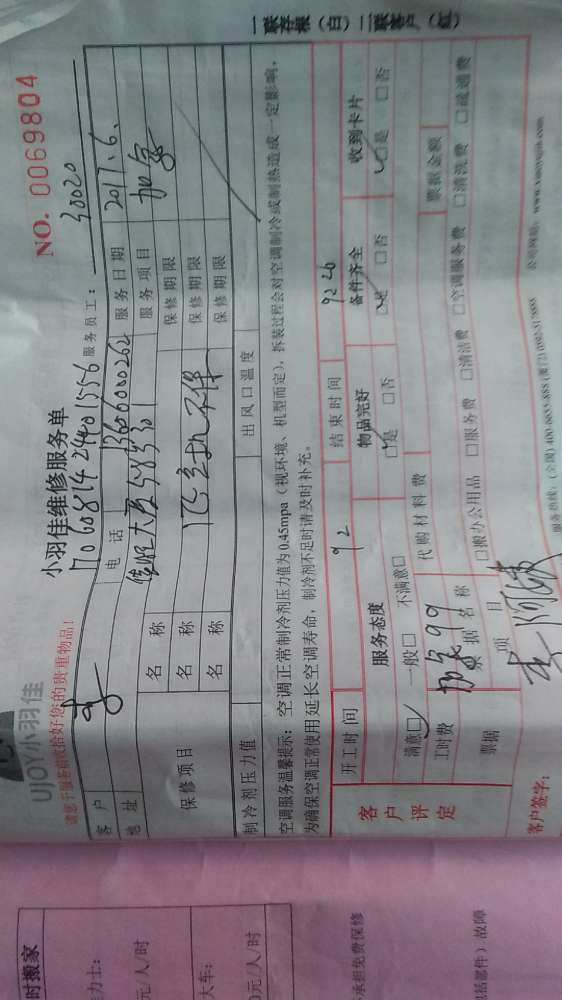 一联存根（白）二联客户（红）
UJOY小羽佳
小羽佳维修服务单
NO. 0069804
请您于服务前收拾好您的贵重物品！
服务员工： 30020
客户
电话 13606000262 服务日期 2017.6.
地址 服务项目 加氟
保修项目 名称 保修期限
名称 保修期限
名称 保修期限
制冷剂压力值 出风口温度
空调服务温馨提示：空调正常制冷剂压力值为0.45mpa（视环境、机型而定），拆装过程会对空调制冷或制热造成一定影响，
为确保空调正常使用延长空调寿命，制冷剂不足时请及时补充。
开工时间 结束时间
客户评定 服务态度 物品完好 备件齐全 收到卡片
满意□ 一般□ 不满意□ □是 □否 □是 □否 □是 □否
工时费 加氟99 代购材料费 票据金额
票据 票据名称 □搬办公用品 □服务费 □清洁费 □空调服务费 □清洗费 □疏通费
项目
客户签字： 服务热线：(全国) 400-8855-888 (厦门) 0592-3175888 公司网站： www.xiaoyujia.com
时搬家
力士：
元/人/时
大车：
0元/人/时
承担免费保修
括部件）故障